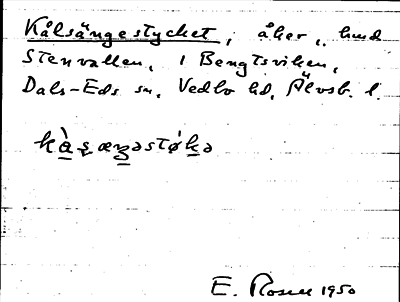 Kålsängestycket, åker, hmd
Stenvallen, 1 Bengtsviken,
Dals-Eds sn, Vedbo hd, Älvsb. l.
kàsæŋəstøkə
E. Rosell 1950